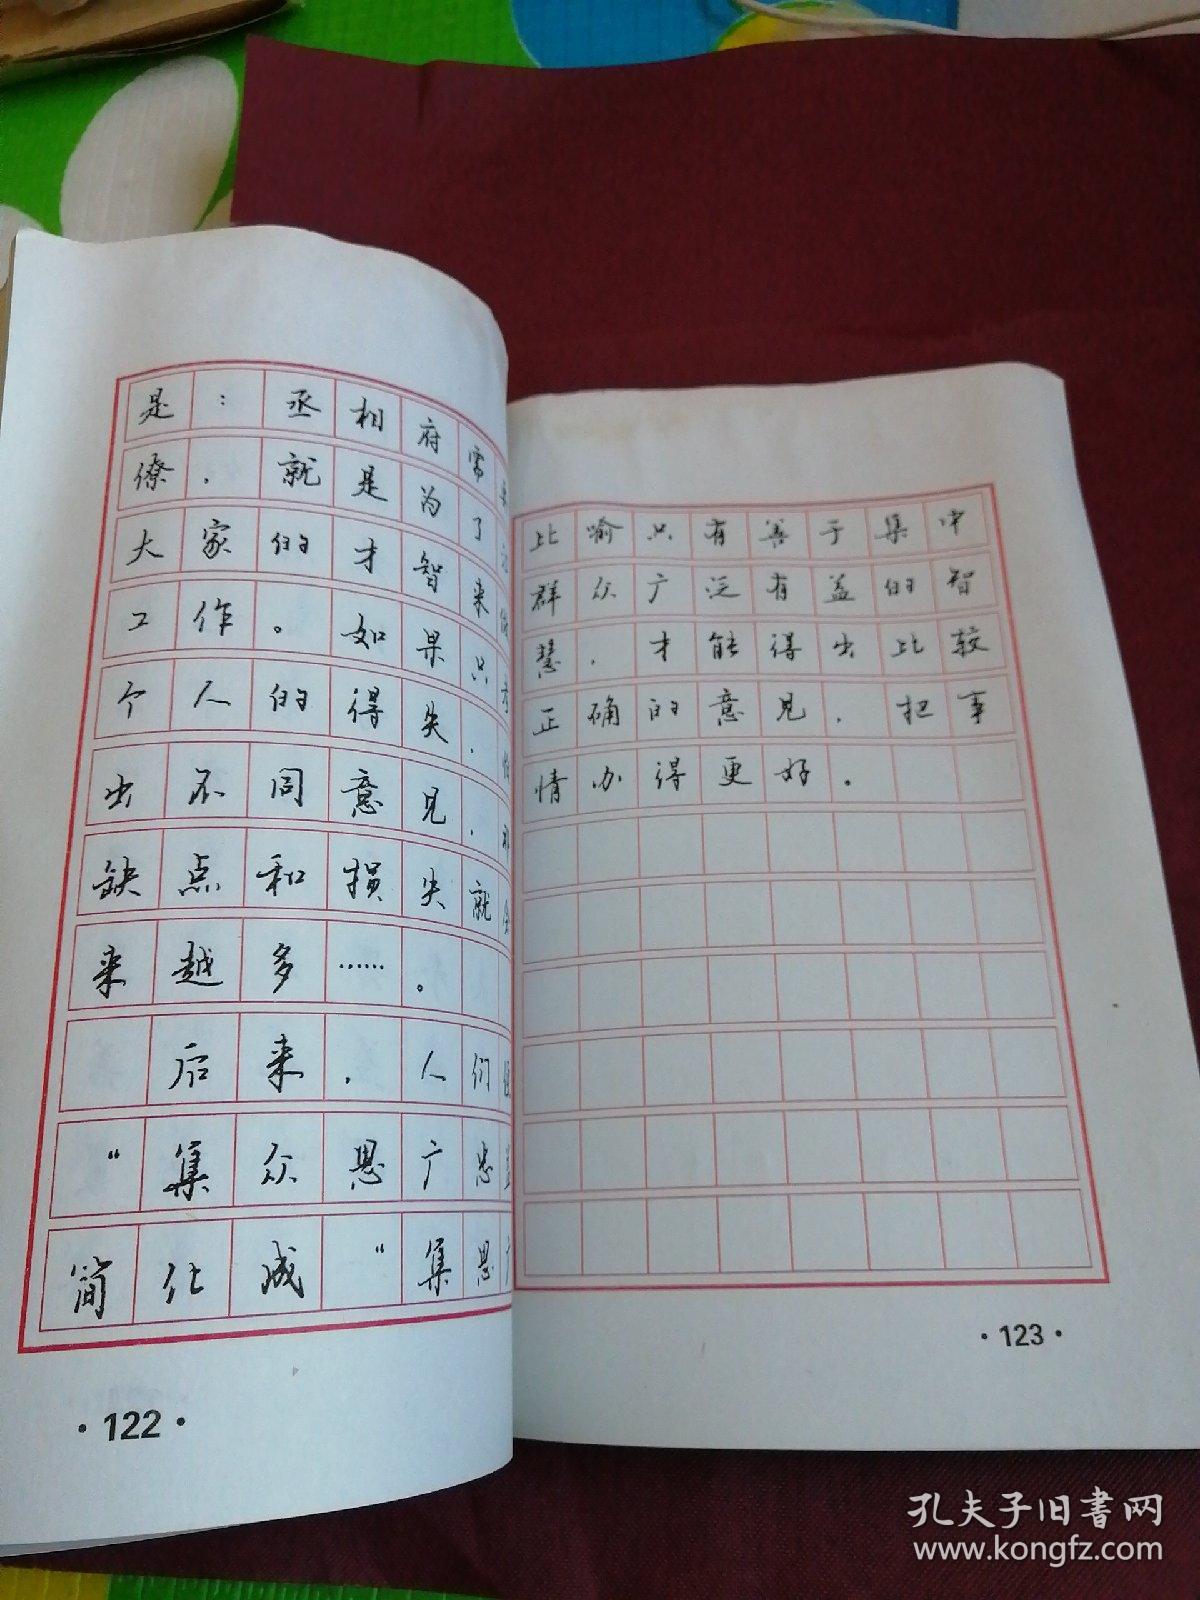 是：丞相府需
僚，就是为了
大家的才智来
工作。如果只
个人的得失，
出不同意见，
缺点和损失就
来越多……。
后来，人们
“集众思广忠
简化成“集思
·122·
比喻只有善于集中
群众广泛有益的智
慧，才能得出比较
正确的意见，把事
情办得更好。
·123·
孔夫子旧书网
www.kongfz.com